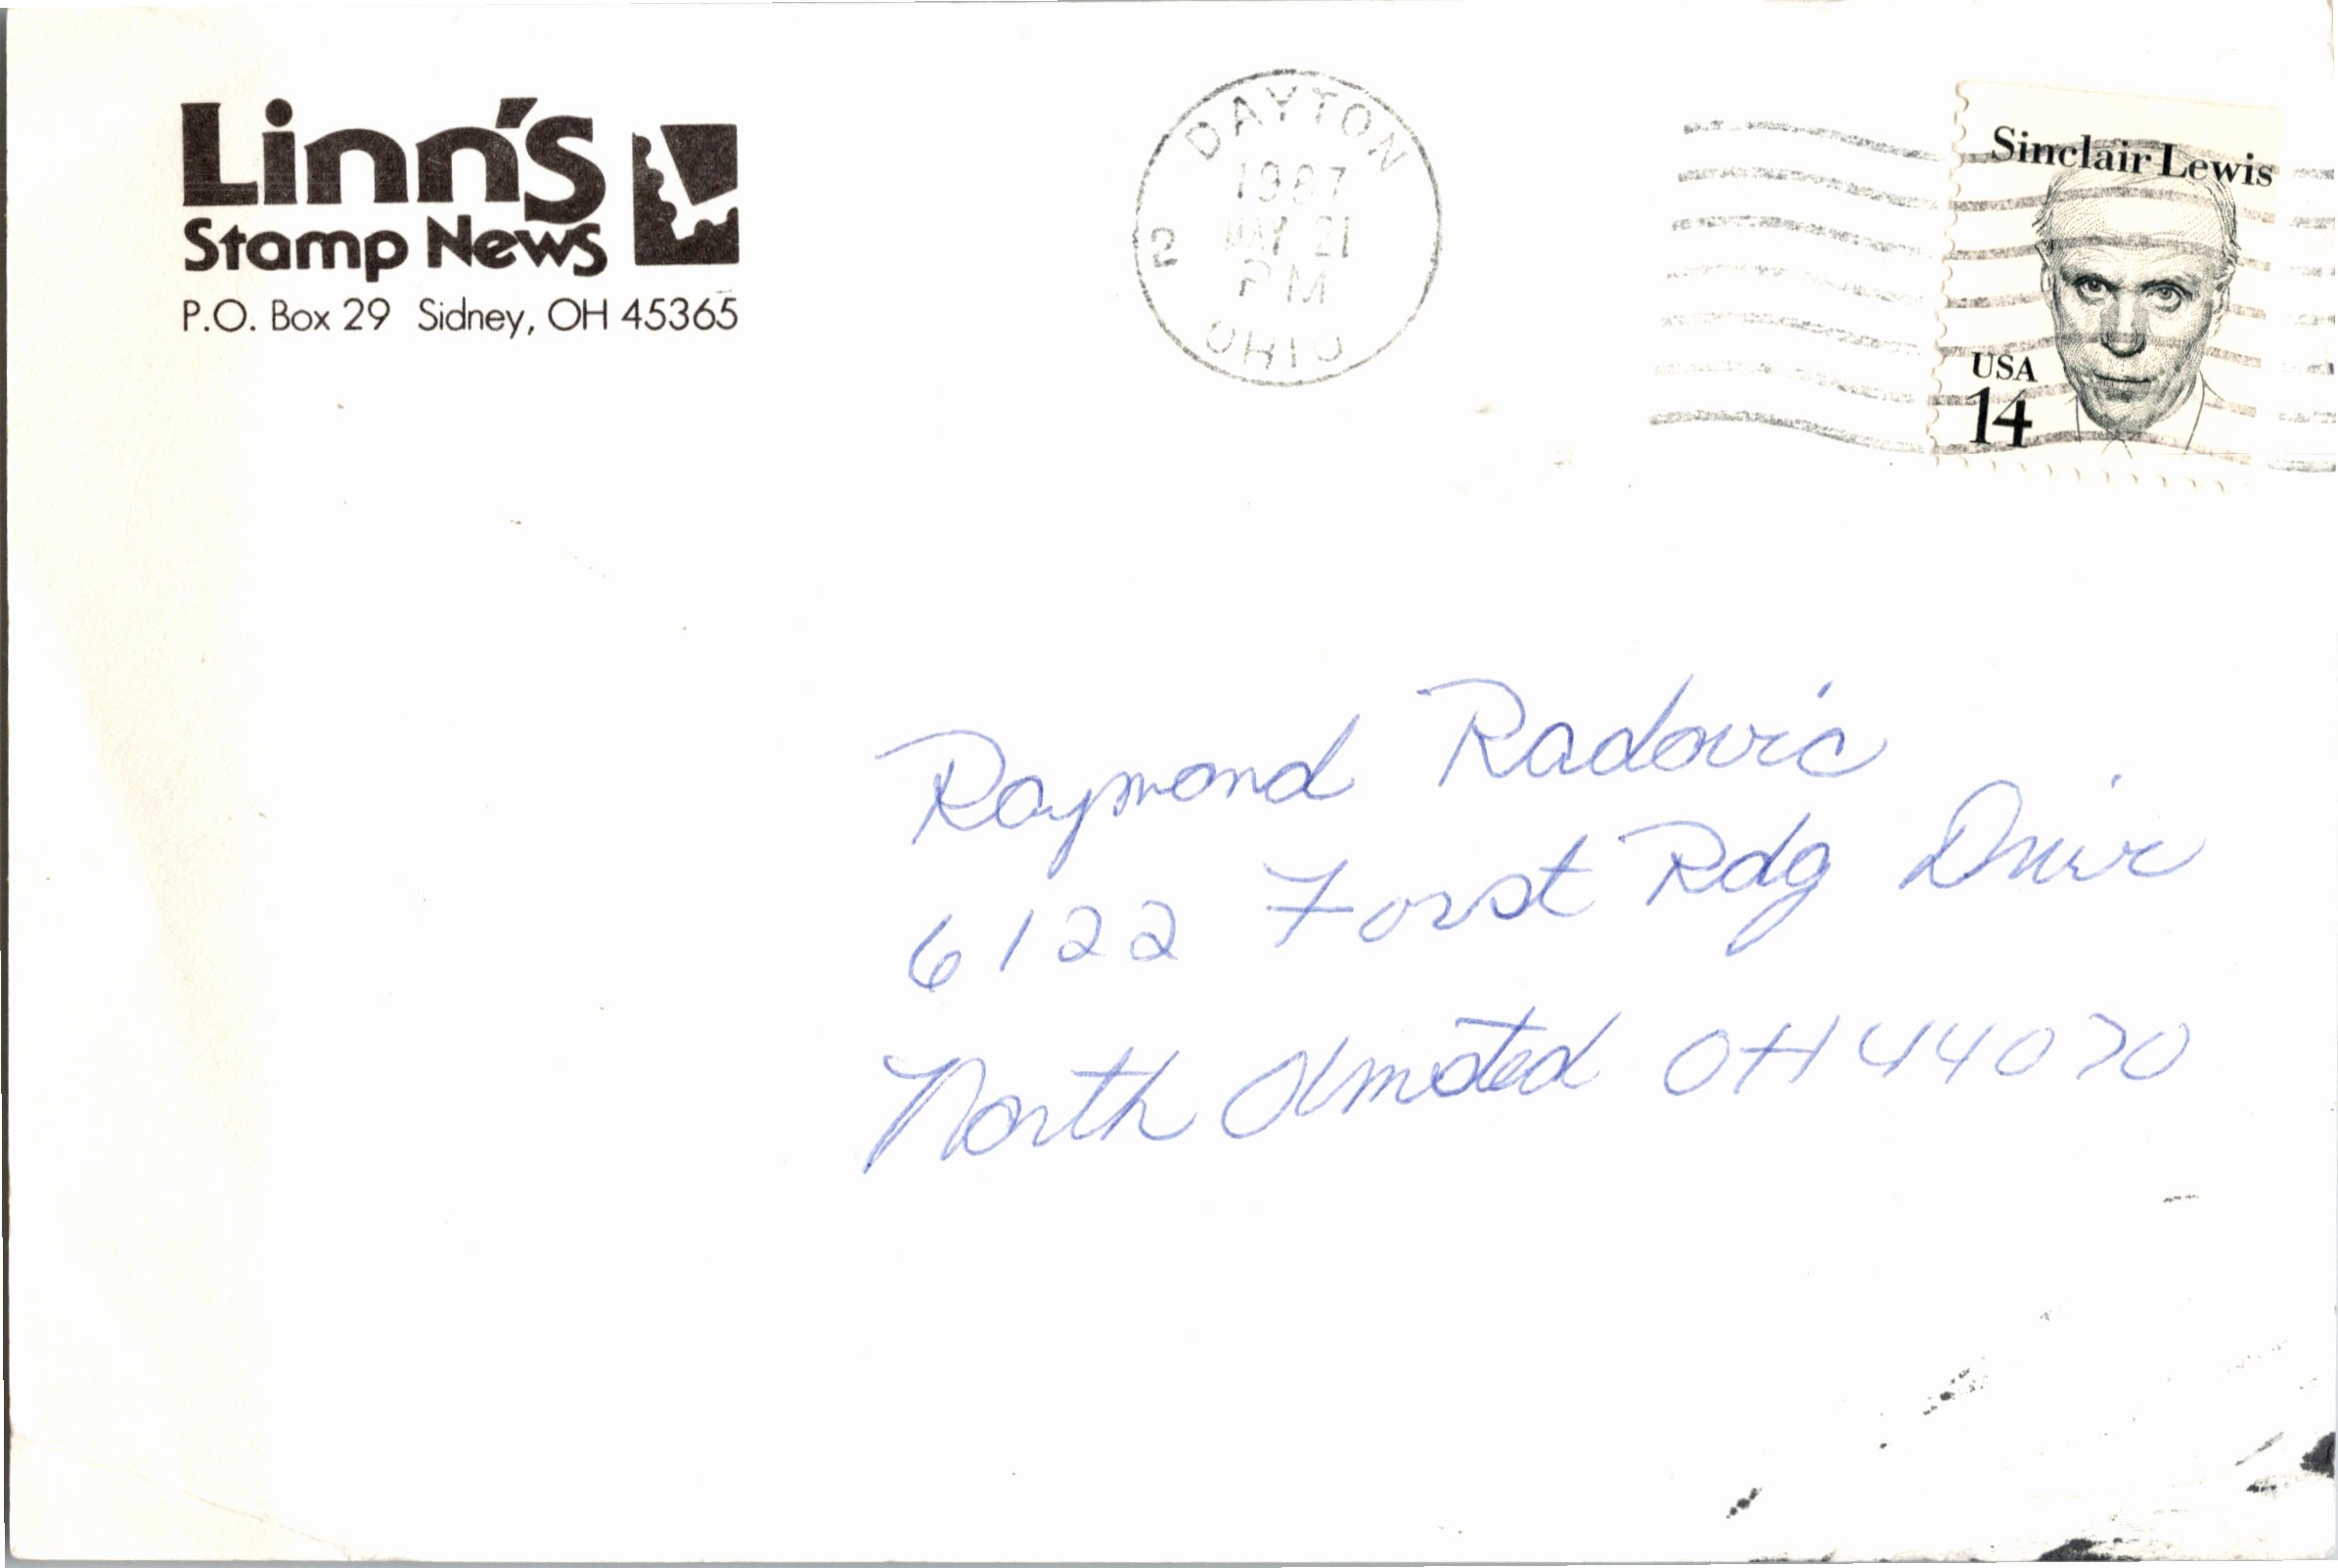 Linn's
Stamp News
P.O. Box 29 Sidney, OH 45365
DAYTON
1987
MAY 21
PM
2
OHIO
Sinclair Lewis
USA
14
Raymond Radovic
6122 Forst Rdg Driv
North Olmsted OH 44070